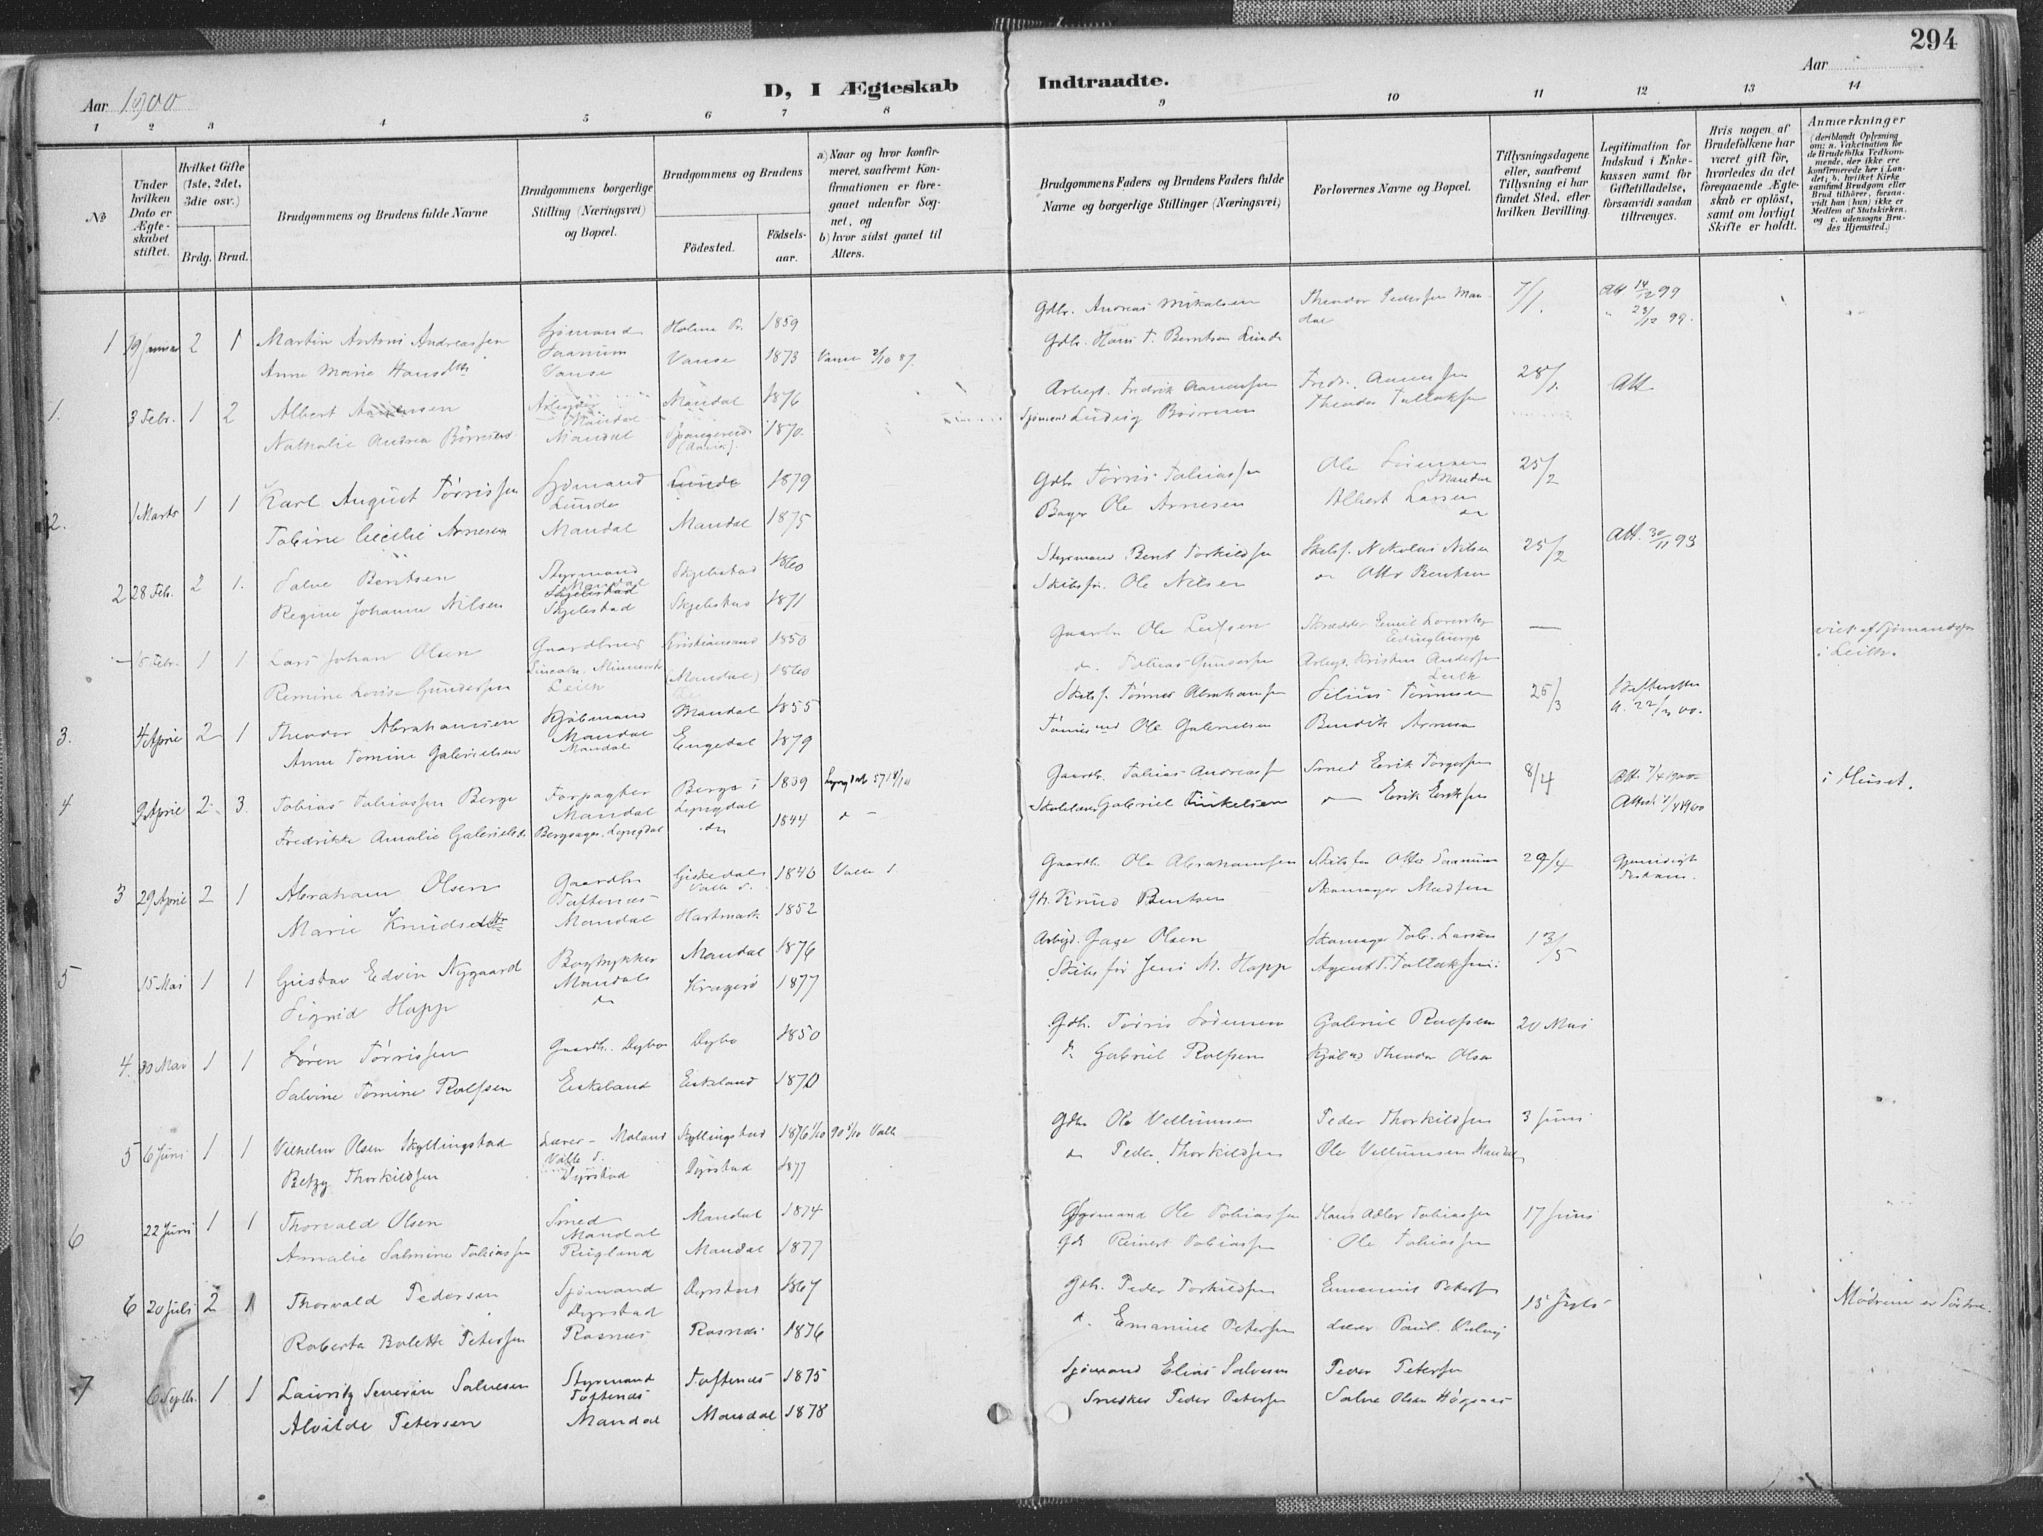 294
Aar 1900
D, I Ægteskab Indtraadte.
Aar
1 2 3 4 5 6 7 8 9 10 11 12 13 14
No
Under hvilken Dato er Ægteskabet stiftet.
Hvilket Gifte (1ste, 2det, 3die osv.)
Brdg. Brud.
Brudgommens og Brudens fulde Navne
Brudgommens borgerlige Stilling (Næringsvei) og Bopæl.
Brudgommens og Brudens
Fødested.
Fødselsaar.
a) Naar og hvor konfirmeret, saafremt Konfirmationen er foregaaet udenfor Sognet, og
b) hvor sidst gaaet til Alters.
Brudgommens Faders og Brudens Faders fulde Navne og borgerlige Stillinger (Næringsvei)
Forlovernes Navne og Bopæl.
Tillysningsdagene eller, saafremt Tillysning ei har fundet Sted, efter hvilken Bevilling.
Legitimation for Indskud i Enkekassen samt for Giftetilladelse, forsaavidt saadan tiltrænges.
Hvis nogen af Brudefolkene har været gift før, hvorledes da det foregaaende Ægteskab er opløst, samt om lovligt Skifte er holdt.
Anmærkninger (deriblandt Oplysning om: a. Vakcination for de Brudefolks Vedkommende, der ikke ere konfirmerede her i Landet; b. hvilket Kirkesamfund Brudgom eller Brud tilhører, forsaavidt han (hun) ikke er Medlem af Statskirken, og c. udensogns Brudes Hjemsted.)
1 19 Januar 2 1 Martin Antoni Andreassen Sjømand Holme 1859 Gdbr. Andreas Mikalsen Theodor Pedersen Mandal 7/1. Att 14/12 99
Anne Marie Hansdtr Vanse Vanse 1873 Vanse 2/10 87. Gdbr. Hans T. Berntsen Lunde " 23/12 99.
1. 3 Febr. 1 2 Albert Aanensen Arbeider Mandal Mandal 1876 Arbeid. Fredrik Aanensen Fredr. Aanensen 28/1. Att.
Nathalie Andrea Børresen Mandal 1870. Sjømand Ludvig Børresen Theodor Tallaksen
2. 1 Marts 1 1 Karl August Tørrissen Sjømand Lunde Lunde 1879 Gdbr Tørris Tobiassen Ole Sørensen Mandal 25/2
Tobine Cecilie Arnesen Mandal Mandal 1875 Bager Ole Arnesen Albert Larsen do
2 28 Feb. 2 1. Salve Bentsen Styrmand Mandal Skjelestad Skjelestad 1860 Styrmand Bent Torkildsen Skibsf. Nikolai Nilsen 25/2 Att. 30/11 93
Regine Johanne Nilsen Skjelestad Skjelestad 1871 Skibsfør. Ole Nilsen do Otto Bentsen
Febr. 1 1 Lars Johan Olsen Gaardbrug Kristianssand 1850 Gaardbr Ole Leifsen Skrædder Emil Lorentz —
Lincoln, Minnesota
Remine Lovise Gundersen Leith Mandal 1860 do. Tobias Gundersen Arbeid. Kristian Andersen Leith
viet af Sjømandspr i Leith.
3. 4 April 2 1 Theodor Abrahamsen Kjøbmand Mandal Mandal 1855 Skibsf. Tønnes Abrahamsen Silius Tønnesen 25/3 Skifteretten
Anne Tomine Gabrielsen Mandal Engedal 1879 Tømmermand Ole Gabrielsen Bendik Arnesen a. 22/3 00.
4 9 April 2 3. Tobias Tobiassen Berge Forpagter Mandal Berge i Lyngdal 1839 Lyngdal 57 Gaardb. Tobias Andreassen Smed Eerik Torgersen 8/4 Att. 7/4 1900 i Huset.
Fredrikke Amalie Gabrielsdtr Bergsager, Lyngdal do 1844 do — Skolelærer Gabriel Tinkelsen do Erik Eriksen Attest 7/4 1900
3 29 April 2 1 Abraham Olsen Gaardbr Toftenes Giskedal Valle S. 1846 Valle S. Gaardb. Ole Abrahamsen Skibsfør Otto Saanum 29/4
Marie Knudsdtr Mandal Hartmark 1852 Gb. Knud Bentsen Skomager Madsen
5 15 Mai 1 1 Gustav Edvin Nygaard Bogtrykker Mandal Mandal 1876 Arbeid. Aage Olsen Skomager Tob. Larsen 13/5
Sigrid Happ do Kragerø 1877 Skibsfør Jens M. Happ Agent T. Tallaksen
4. 30 Mai 1 1 Søren Tørrissen Gaardb. Dybo Dybo 1850 Gdb. Tørris Sørensen Gabriel Rolfsen 20 Mai
Salvine Tomine Rolfsen Eikeland Eikeland 1870 do Gabriel Rolfsen Kjøbm Theodor Olsen
5 6 Juni 1 1 Vilhelm Olsen Skyllingstad Lærer - Moland Valle S. Skyllingstad 1876 1/10 90 5/10 Valle Gdb. Ole Vellumsen Peder Thorkildsen 3 Juni
Betzy Thorkildsen Dyrstad Dyrstad 1877 do Peder Thorkildsen Ole Vellumsen Mandal
6 22 Juni 1 1 Thorvald Olsen Smed Mandal Mandal 1874 Styrmand Ole Tobiassen Hans Adler Tobiassen 17 Juni
Amalie Salmine Tobiassen Rugland Mandal 1877 Gdb Reinert Tobiassen Ole Tobiassen
6 20 Juli 2 1 Thorvald Pedersen Sjømand Dyrstad Dyrstad 1867 Gdb. Peder Torkildsen Emanuel Petersen 15 Juli Mødrene er Søstre.
Roberta Bolette Petersen Rosnes Rosnes 1876 do. Emanuel Petersen Lærer Paul
7 6 Septbr. 1 1 Lauritz Severin Salvesen Styrmand Toftenes Toftenes 1875 Sjømand Elias Salvesen Peder Petersen
Alvilde Petersen Mandal Mandal 1878 Snedker Peder Petersen Salve Olsen Høgsnes